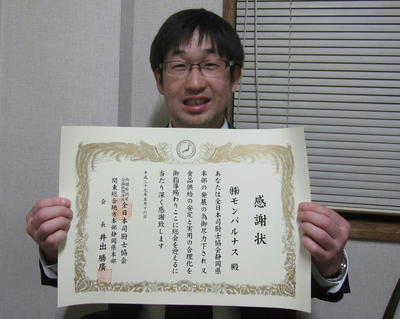 感謝状
㈱モンパルナス 殿
あなたは全日本司厨士協会静岡県
本部の発展の為御尽力下され又
食品供給の安定と実用の合理化を
御指導賜わりここに総会を迎えるに
当たり深く感謝致します
平成二十九年五月十六日
全日本司厨士協会
関東総合地方本部静岡県本部
会長 井出 勝廣